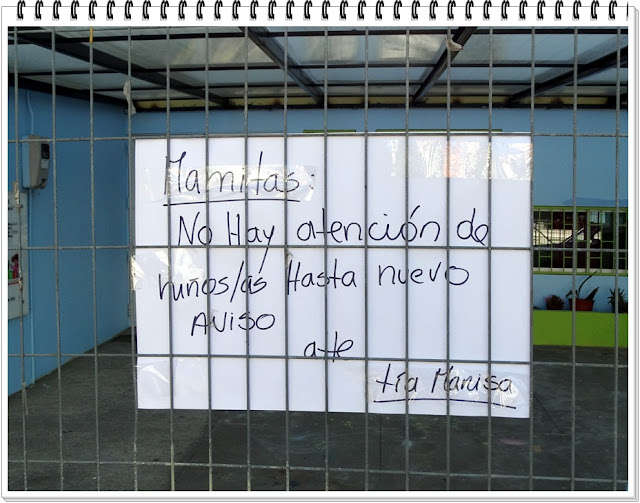 Mamitas:
No Hay atención de
niños/as Hasta nuevo
AVISO
ate
tía Marisa